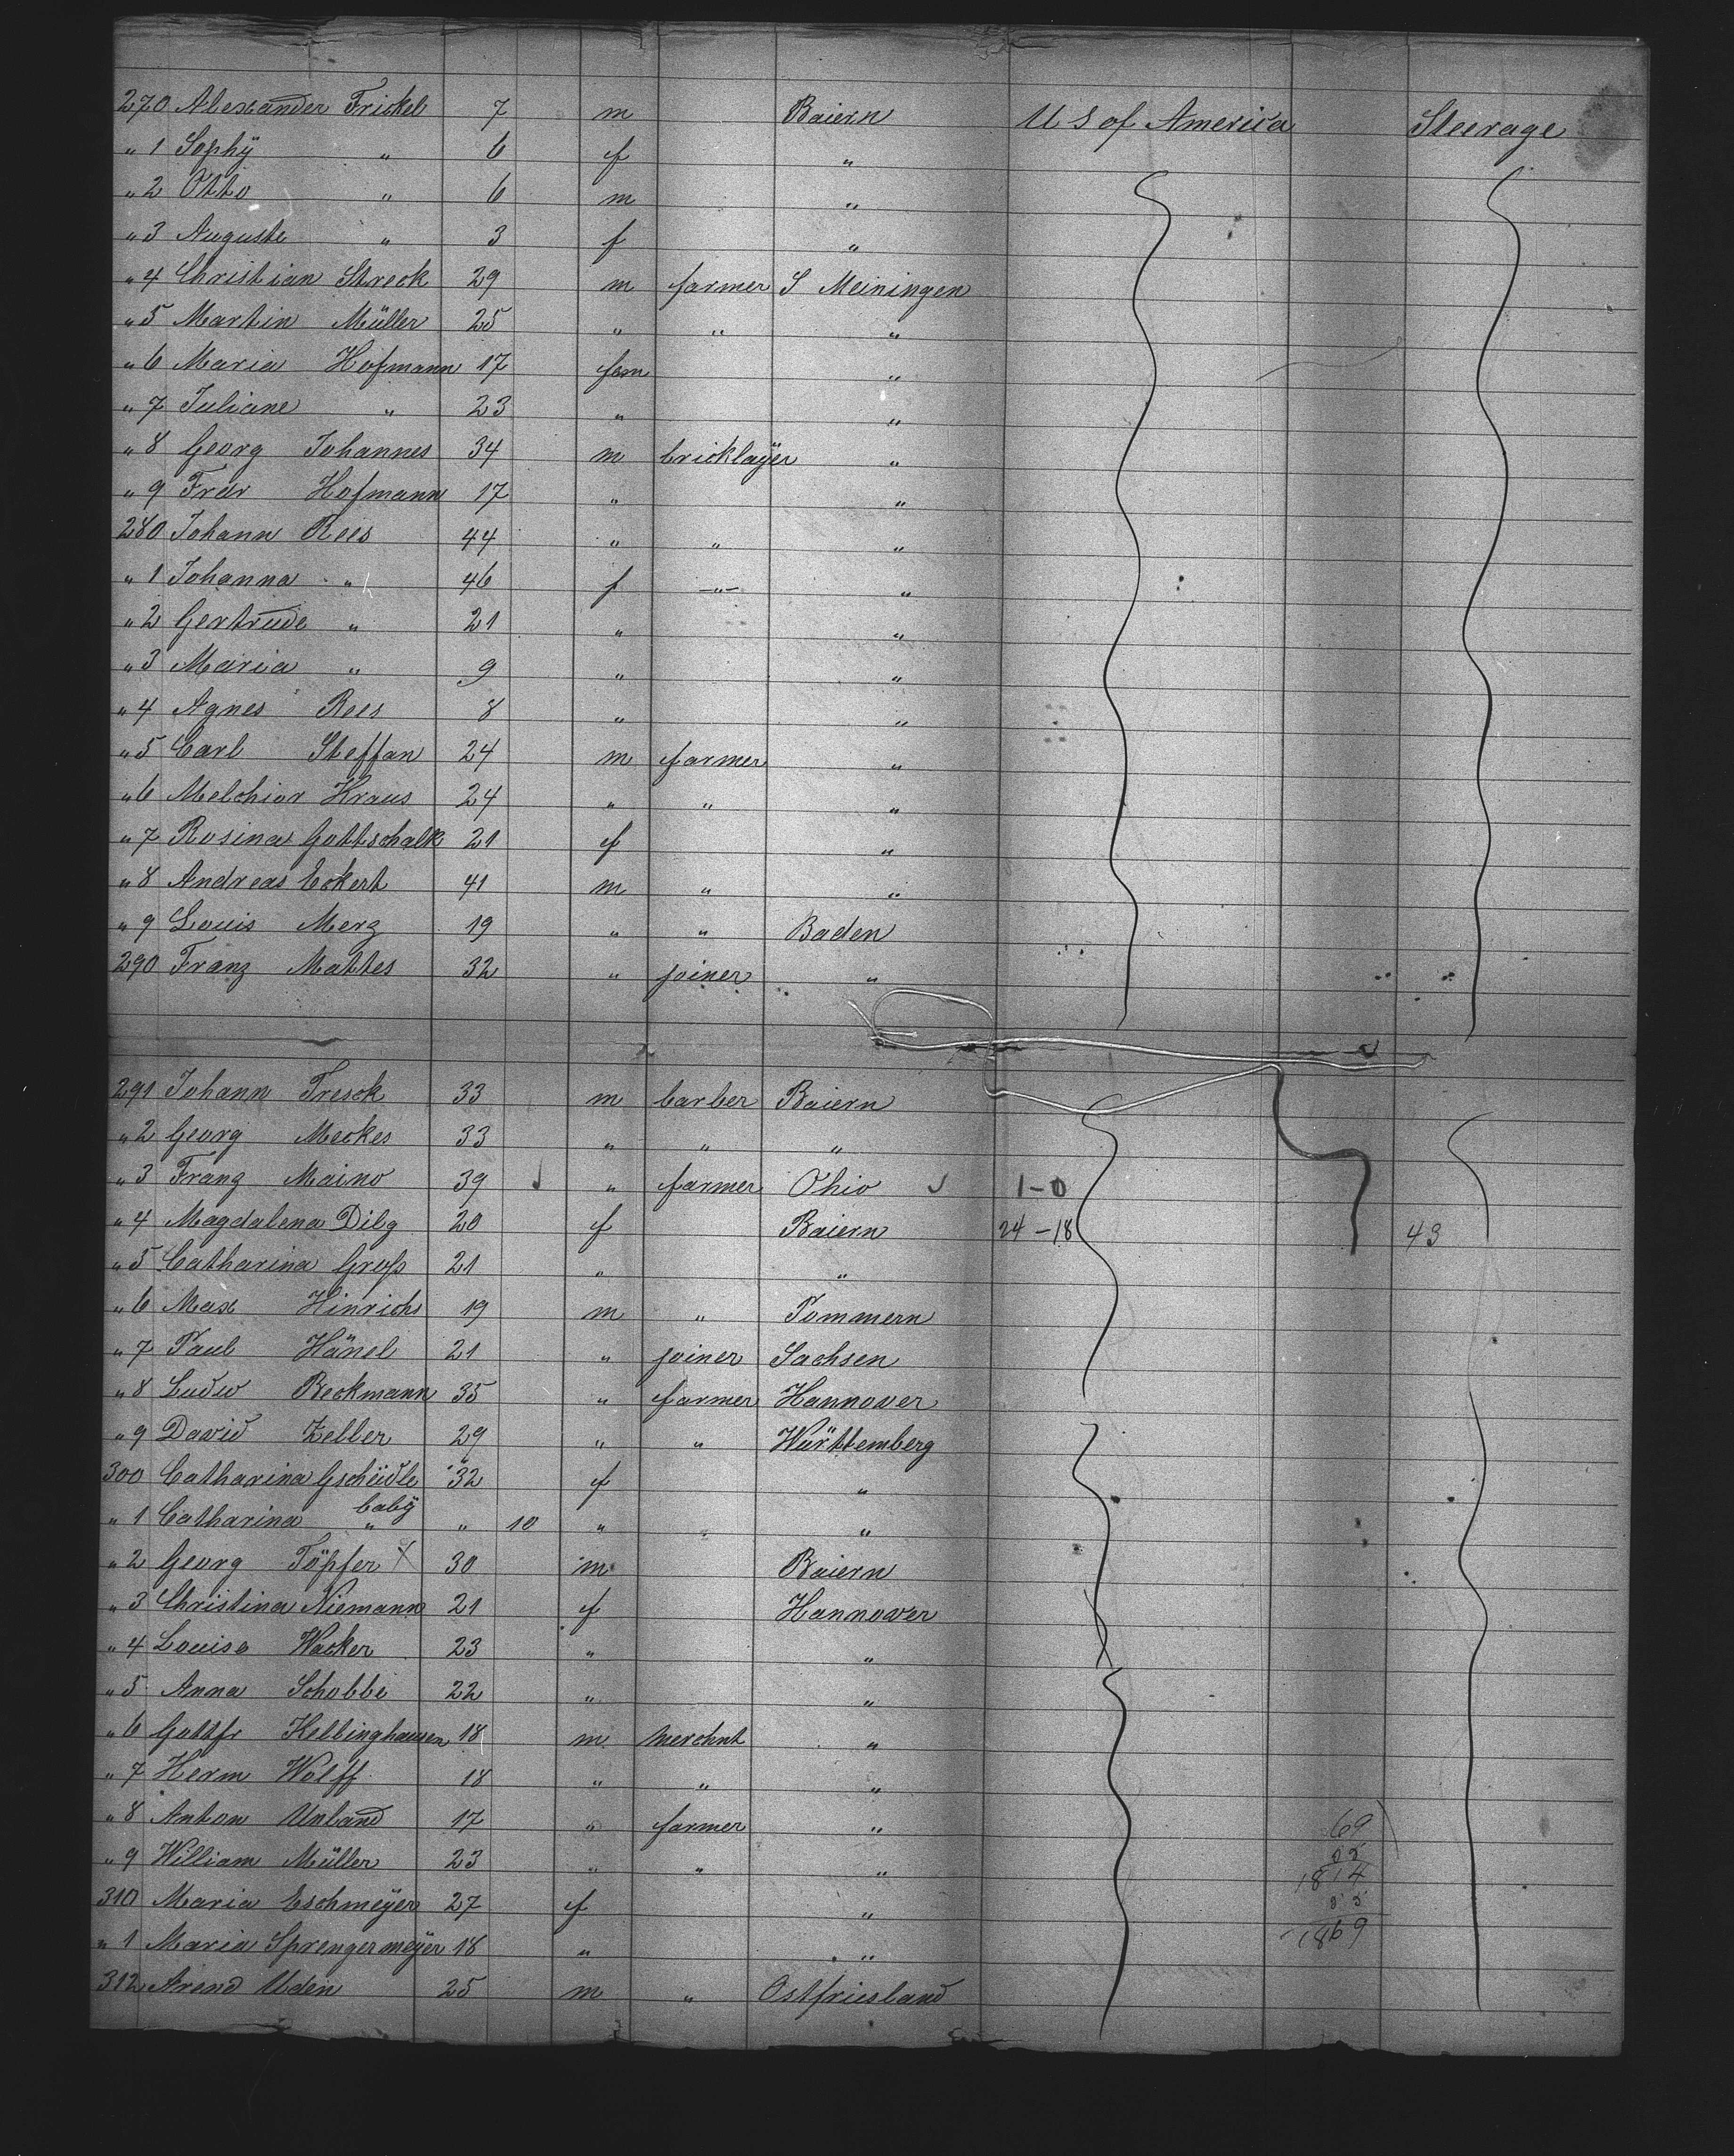 270 Alexander Frickel 7 m Baiern U S of America Steerage
" 1 Sophÿ " 6 f "
" 2 Otto " 6 m "
" 3 Auguste " 3 f "
" 4 Christian Streck 29 m farmer S Meiningen
" 5 Martin Müller 25 " " "
" 6 Maria Hofmann 17 fem "
" 7 Juliane " 23 " "
" 8 Georg Johannes 34 m bricklaÿer "
" 9 Hofmann 17 " "
280 Johann Rees 44 " " "
" 1 Johanna " 46 f -"- "
" 2 Gertrude " 21 " "
" 3 Maria " 9 " "
" 4 Agnes Rees 8 " "
" 5 Carl Steffan 24 m farmer "
" 6 Melchior Kraus 24 " " "
" 7 Rosina Gottschalk 21 f "
" 8 Andreas Eckert 41 m " "
" 9 Louis Merz 19 " " Baden
290 Franz Mattes 32 " joiner "
291 Johann Tresck 33 m barber Baiern
" 2 Georg Meckes 33 " " "
" 3 Franz Maino 39 " farmer Ohio 1-0
" 4 Magdalena Dilg 20 f Baiern 24-18 43
" 5 Catharina Groß 21 " "
" 6 Max Hinrichs 19 m " Pommern
" 7 Paul Hänel 21 " joiner Sachsen
" 8 Ludw Beckmann 35 " farmer Hannover
" 9 David Zeller 29 " " Württemberg
300 Catharina Gscheidle 32 f "
" 1 Catharina " baby " 10 " "
" 2 Georg Töpfer X 30 m Baiern
" 3 Christina Niemann 21 f Hannover
" 4 Louise Wacker 23 " "
" 5 Anna Schobbe 22 " "
" 6 Gottfr Kellinghausen 18 m merchnt "
" 7 Herm Wolff 18 " " "
" 8 Anton Unland 17 " farmer " 69
" 9 William Müller 23 " " " 55
1814
310 Maria Eschmeÿer 27 f " 55
1869
" 1 Maria Sprengermeÿer 18 " "
312 Arend Uden 25 m " Ostfriesland